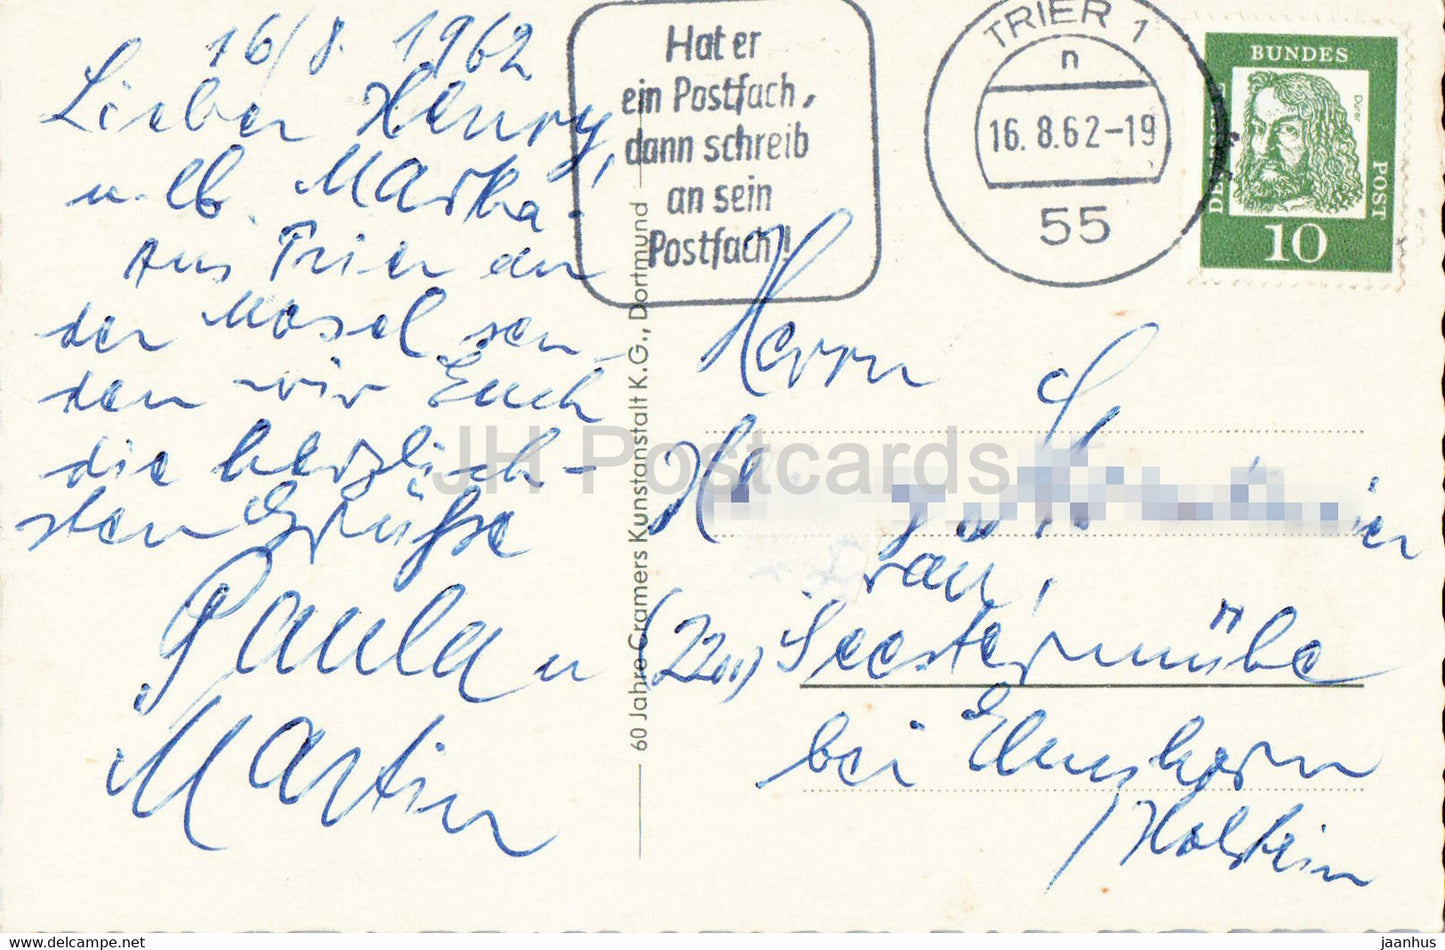 16/8. 1962
Lieber Henry,
u. lb. Martha.
Aus Trier an
der Mosel sen-
den wir Euch
die herzlich-
sten Grüße
Paula u
Martin
60 Jahre Cramers Kunstanstalt K.G., Dortmund
Hat er
ein Postfach,
dann schreib
an sein
Postfach!
TRIER 1
n
16. 8. 62-19
55
DEUTSCHE
BUNDES
POST
Dürer
10
Herrn
(2201) Seestermühe
bei Elmshorn
/Holstein
JH Postcards
https://jhpostcards.com
jaanhus